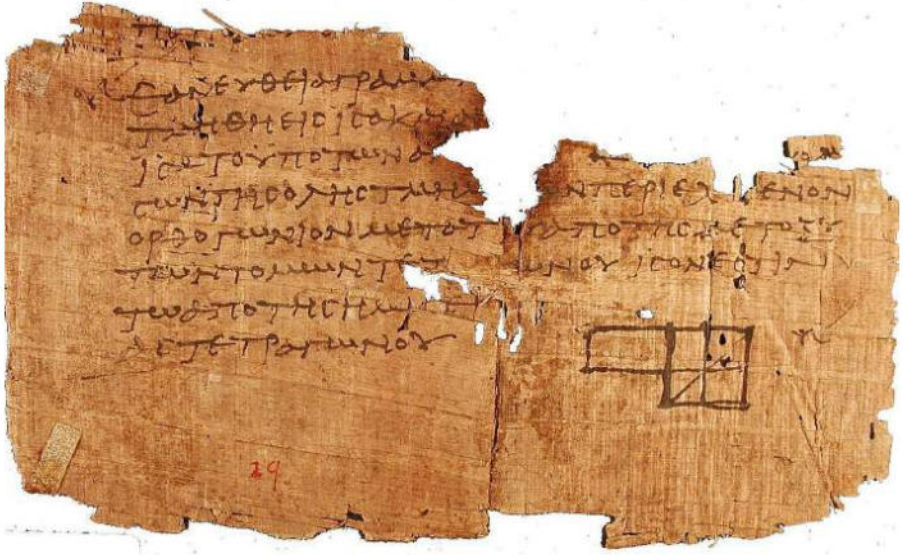 ΕΑΝ ΕΥΘΕΙΑ ΓΡΑΜΜ
ΤΜΗΘΗ ΕΙϹ ΙϹΑ Κ
ΤΟ ΥΠΟ ΤΩΝ
ϹΩΝ ΤΗϹ ΟΛΗϹ ΤΜΗΜ ΩΝ ΠΕΡΙΕΧ ΕΝΟΝ
ΟΡΘΟΓΩΝΙΟΝ ΜΕΤΑ ΤΟΥ ΑΠΟ ΤΗϹ ΜΕΤΟΞΥ
ΤΩΝ ΤΟΜΩΝ ΤΕΤ ΩΝΟΥ ΙϹΟΝ ΕϹΤΙΝ
ΤΩ ΑΠΟ ΤΗϹ ΗΜΙϹΕΙ
ΤΕΤΡΑΓΩΝΟΥ
29